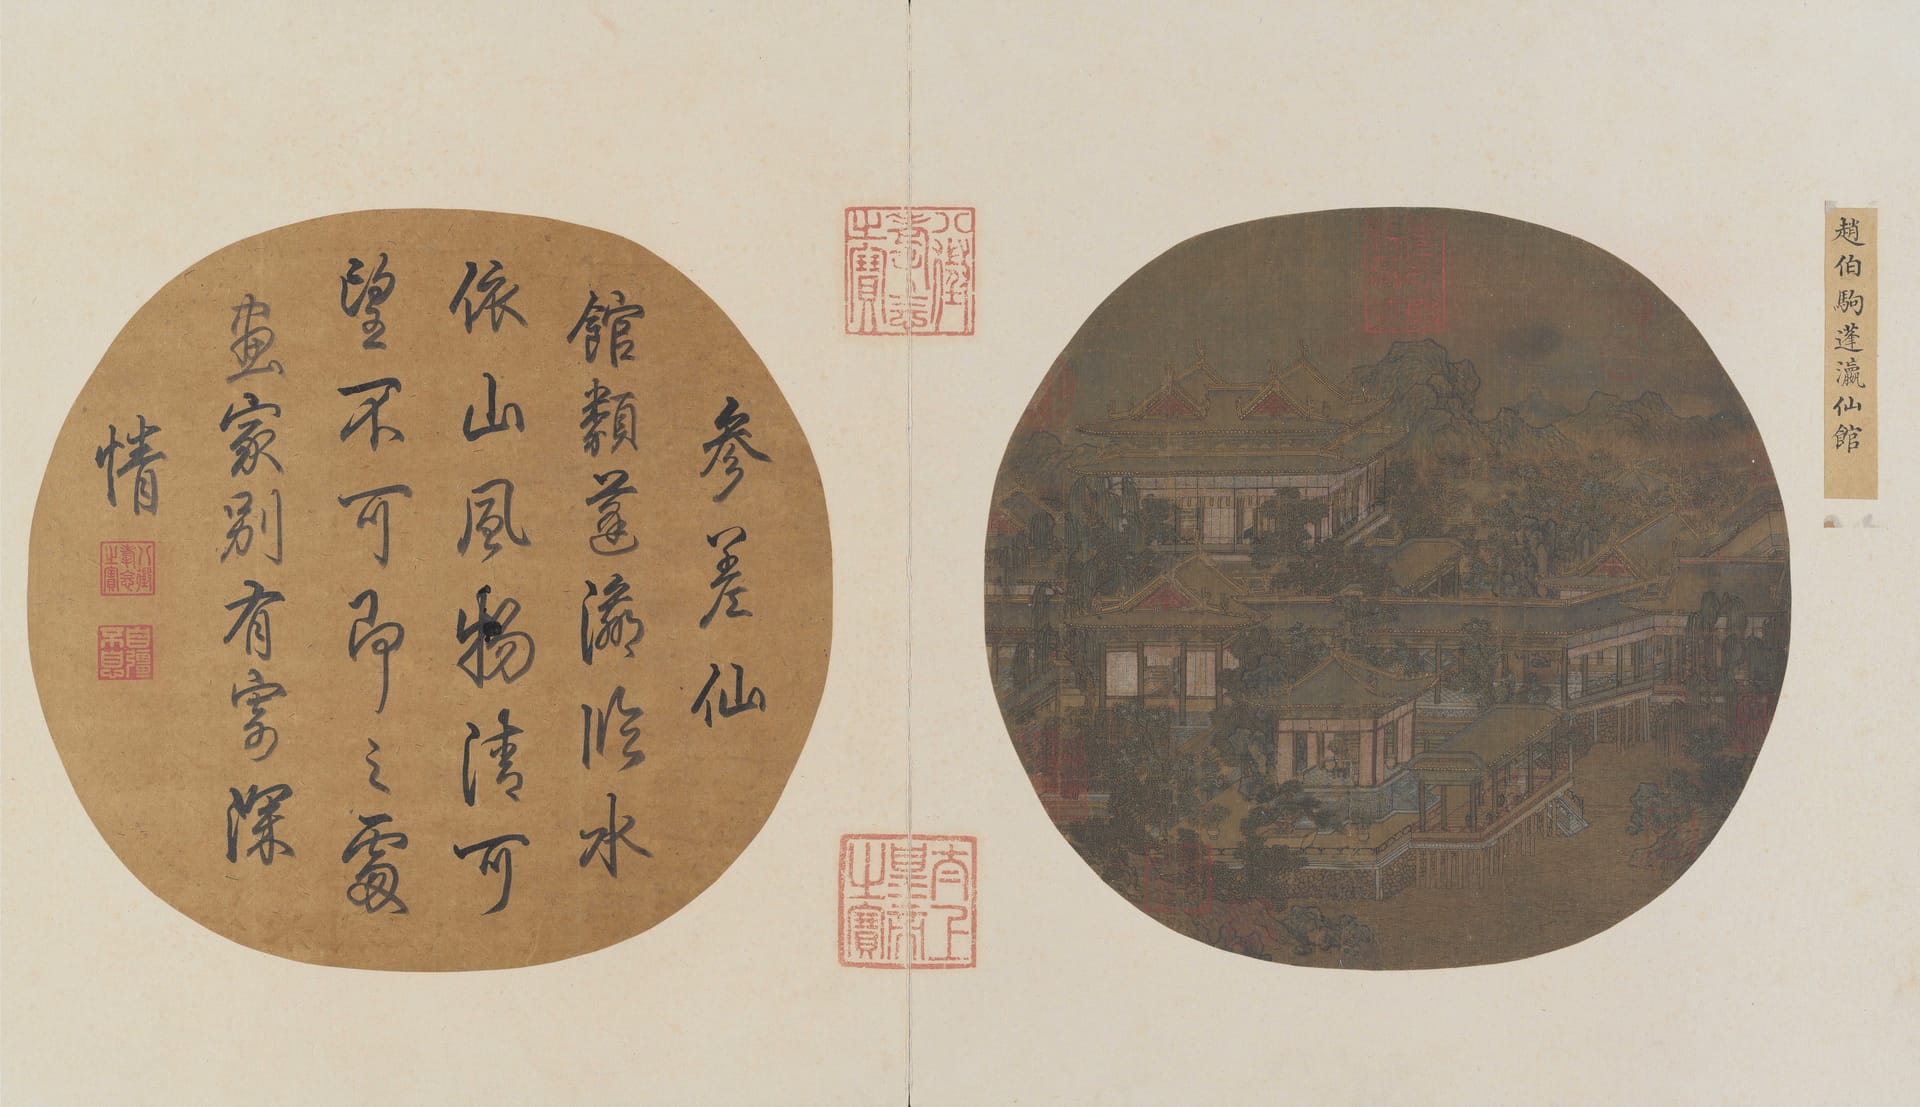 趙伯駒蓬瀛仙館
八徵耄念之寶
太上皇帝之寶
參差仙
館類蓬瀛临水
依山風物清可
望不可即之處
畫家別有寄深
情
八徵耄念之寶
自彊不息